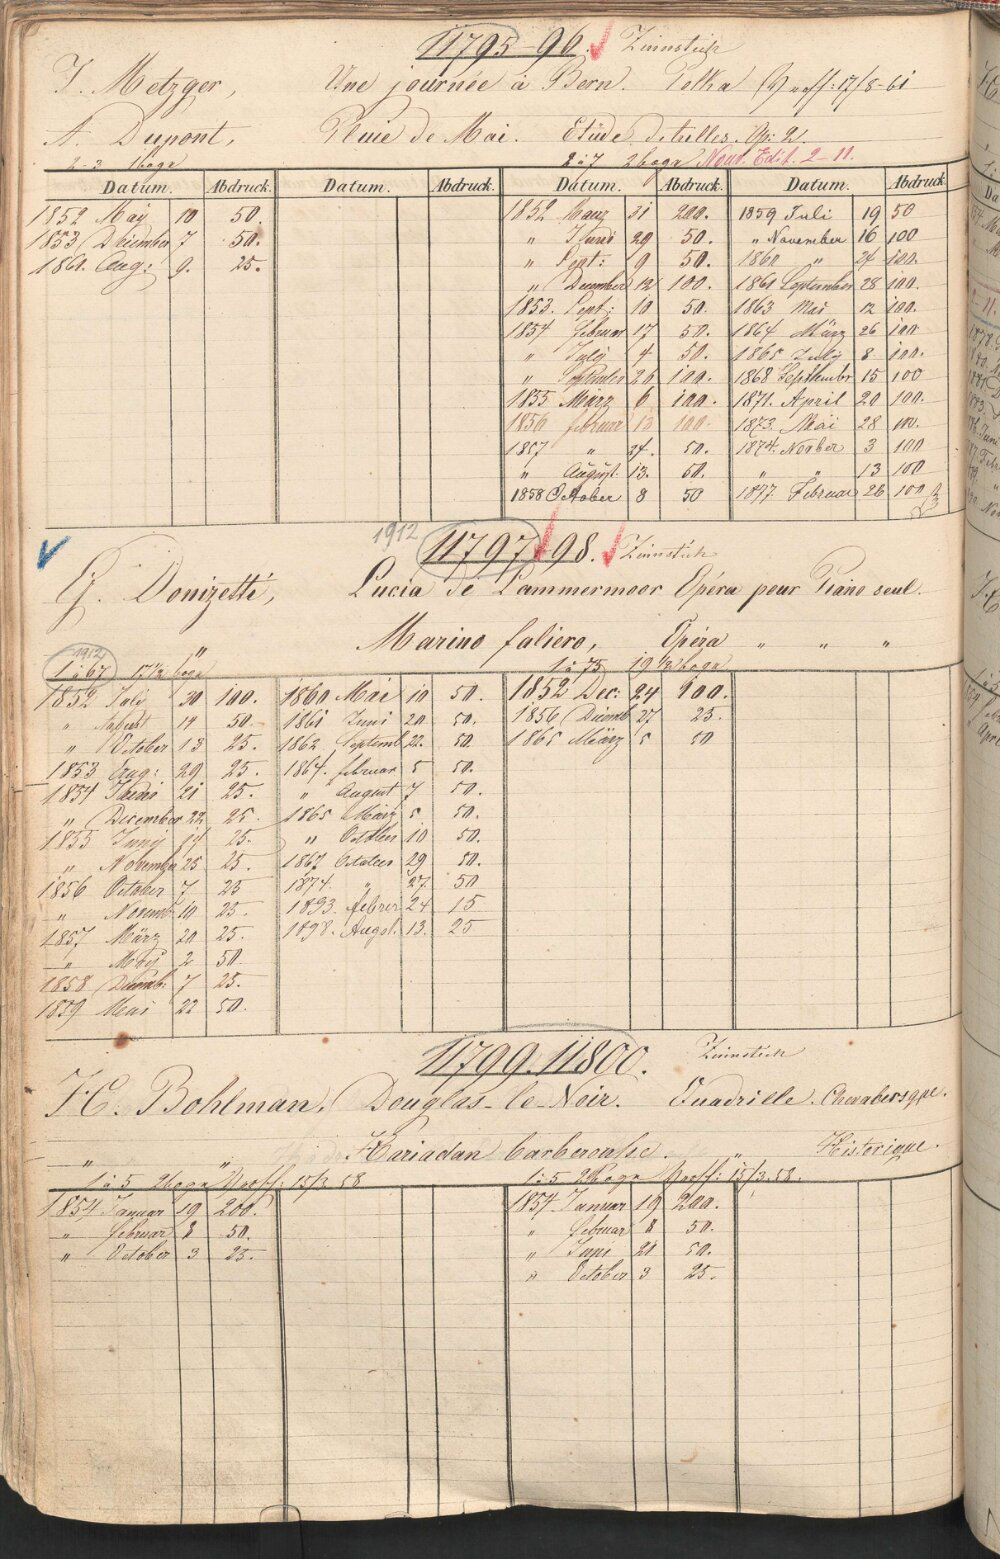 11795-96. Zinnstich
J. Metzger, Une journée à Bern. Polka
A. Dupont, Pluie de Mai. Etüde Op: 2.
2-3 1 boga 2 à 7 2 boga Nouv. Edit. 2-11.
Datum. Abdruck. Datum. Abdruck. Datum. Abdruck. Datum. Abdruck.
1852 May 10 50. 1852 Maerz 31 200. 1859 Juli 19 50
1853 December 7 50. " Juni 29 50. " November 16 100
1861. Aug: 9. 25. " Sept: 9 50. 1860 " 24 100.
" December 12 100. 1861 September 28 100.
1853. Sept: 10 50. 1863 Mai 12 100.
1854 Februar 17 50. 1864 März 26 100
" July 4 50. 1865 July 8 100.
" September 26 100. 1868 September 15 100
1855 März 6 100. 1871. April 20 100.
1856 februar 13 100. 1873. Mai 28 100.
1857 " 24. 50. 1874. November 3 100
" August. 13. 50. " " 13 100
1858 October 8 50 1877. Februar 26 100
1912 11797-98. Zinnstich
G. Donizetti, Lucia di Lammermoor Opéra pour Piano seul.
" Marino faliero, Opéra " " "
1912
1 à 67 17 1/2 boga 1 à 75 19 1/2 boga
1852 July 30 100. 1860 Mai 10 50. 1852 Dec: 24 100.
" August 14 50. 1861 Juni 20 50. 1856 Decemb 27 25.
" October 13 25. 1862 Septemb. 22. 50. 1865 März 5 50
1853 Aug: 29 25. 1864. februar 5 50.
1854 21 25. " August 7 50.
" December 22 25. 1865 März 5. 50.
1855 Juny 14 25. " October 10 50.
" November 25 25. 1867 October 29 50.
1856 October 7 25 1874. " 27. 50
" Novemb: 10 25. 1893. februar 24 15
1857 März 20 25. 1898. Augst. 13. 25
" May 2 50.
1858 Decemb: 7 25.
1859 Mai 22 50.
11799. 11800. Zinnstich
H. C. Bohlman. Douglas-le-Noir. Quadrille. Chevaleresque.
" " Hariadan barberousse. " Historique.
1 à 5 2 boga Proff: 15/3 58 1 à 5 2 boga Proff: 15/3. 58.
1854 Januar 19 200. 1854. Januar 19 200.
" februar 8 50. " februar 8 50.
" October 3 25. " Juni 21 50.
" October 3 25.